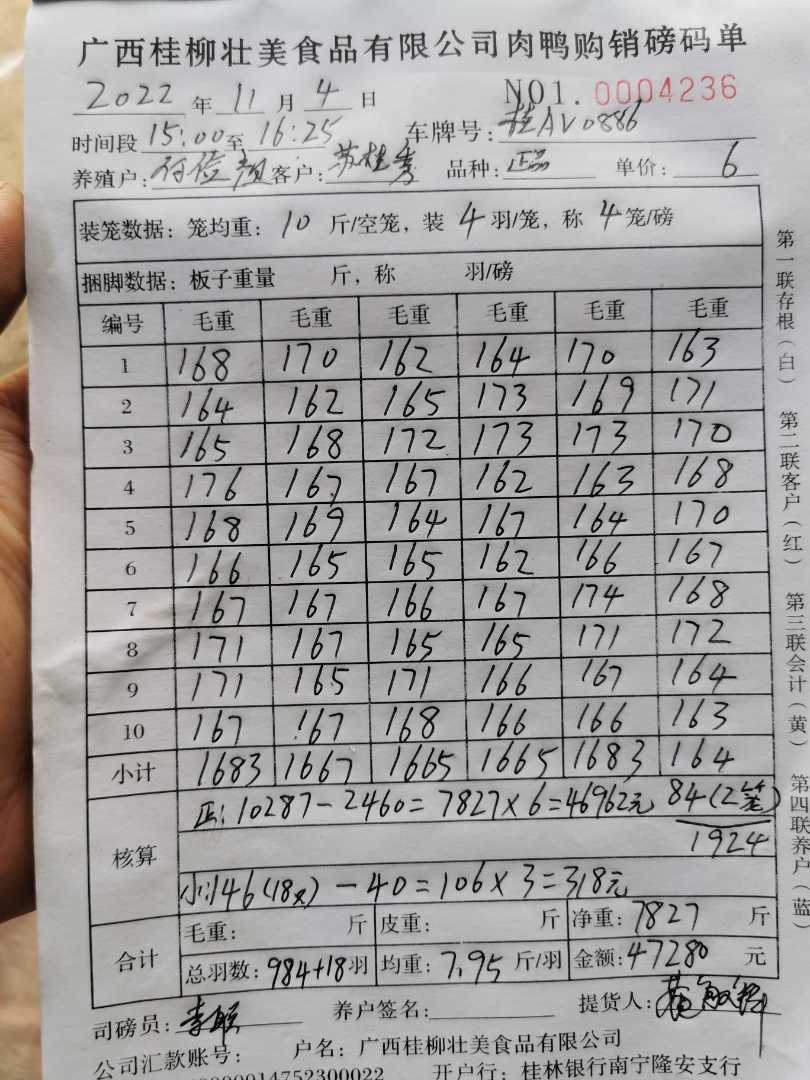 广西桂柳壮美食品有限公司肉鸭购销磅码单
2022 年 11 月 4 日 NO1. 0004236
时间段 15:00 至 16:25 车牌号: 桂AV0886
养殖户: 客户: 苏桂秀 品种: 正品 单价: 6
装笼数据: 笼均重: 10 斤/空笼, 装 4 羽/笼, 称 4 笼/磅
捆脚数据: 板子重量 斤, 称 羽/磅
编号 毛重 毛重 毛重 毛重 毛重 毛重
1 168 170 162 164 170 163
2 164 162 165 173 169 171
3 165 168 172 173 173 170
4 176 167 167 162 163 168
5 168 169 164 167 164 170
6 166 165 165 162 166 167
7 167 167 166 167 174 168
8 171 167 165 165 171 172
9 171 165 171 166 167 164
10 167 167 168 166 166 163
小计 1683 1667 1665 1665 1683 164
核算 正: 10287-2460=7827×6=46962元 84(2笼)
1924
小: 146(18只)-40=106×3=318元
合计 毛重: 斤 皮重: 斤 净重: 7827 斤
总羽数: 984+18 羽 均重: 7.95 斤/羽 金额: 47280 元
司磅员: 养户签名: 提货人:
公司汇款账号: 户名: 广西桂柳壮美食品有限公司
00014752300022 开户行: 桂林银行南宁隆安支行
第一联存根(白) 第二联客户(红) 第三联会计(黄) 第四联养户(蓝)